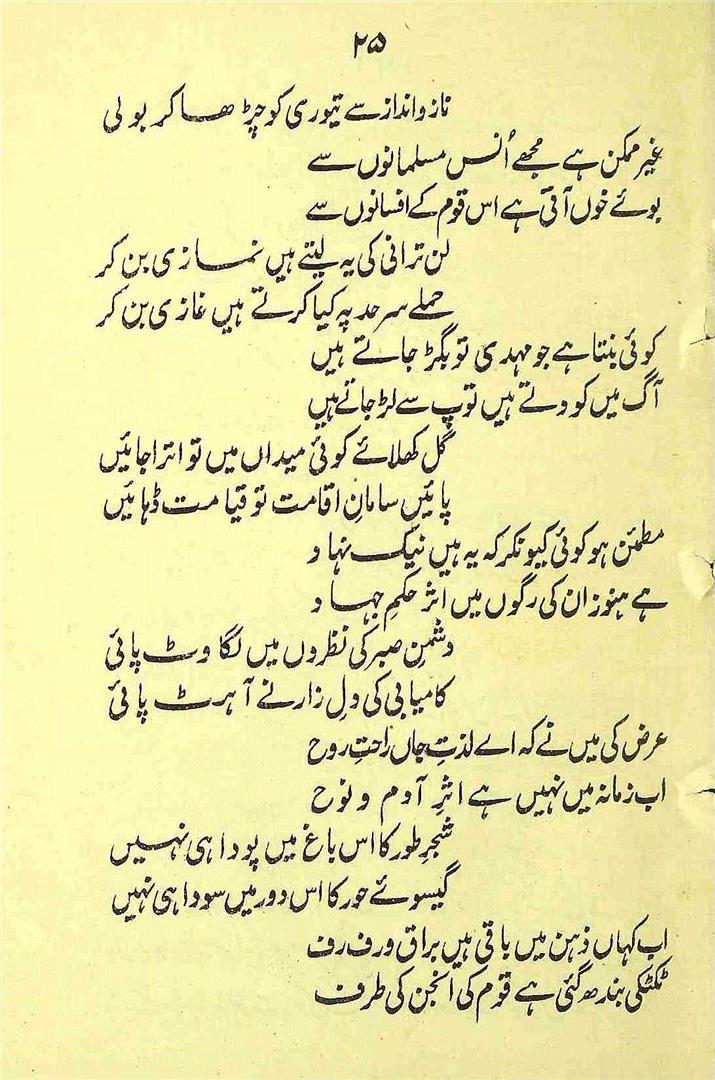 ۲۵
ناز و انداز سے تیوری کو چڑھا کر بولی
غیر ممکن ہے مجھے اُنس مسلمانوں سے
بوئے خوں آتی ہے اس قوم کے افسانوں سے
لن ترانی کی یہ لیتے ہیں نمازی بن کر
حملے سرحد پہ کیا کرتے ہیں غازی بن کر
کوئی بنتا ہے جو مہدی تو بگڑ جاتے ہیں
آگ میں کودتے ہیں توپ سے لڑ جاتے ہیں
گل کھلائے کوئی میداں میں تو اترا جائیں
پائیں سامانِ اقامت تو قیامت ڈہائیں
مطمئن ہو کوئی کیونکر کہ یہ ہیں نیک نہاد
ہے ہنوز ان کی رگوں میں اثر حکمِ جہاد
دشمنِ صبر کی نظروں میں لگاوٹ پائی
کامیابی کی دلِ زار نے آہٹ پائی
عرض کی میں نے کہ اے لذتِ جاں راحتِ روح
اب زمانہ میں نہیں ہے اثرِ آدم و نوح
شجرِ طور کا اس باغ میں پودا ہی نہیں
گیسوئے حور کا اس دور میں سودا ہی نہیں
اب کہاں ذہن میں باقی ہیں براق و رف رف
ٹکٹکی بندھ گئی ہے قوم کی انجن کی طرف